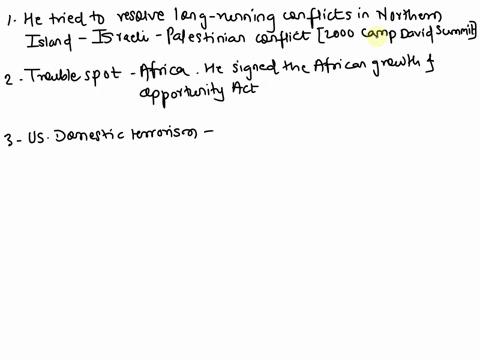 1. He tried to resolve long-running conflicts in Northern
Island - Israeli - Palestinian conflict [2000 Camp David Summit]
2. Trouble spot - Africa. He signed the African growth &
opportunity Act
3- US. Domestic terrorism -